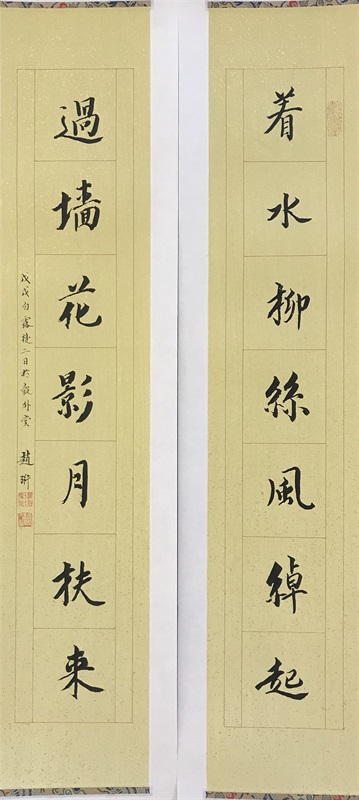 着水柳絲風綽起
過墻花影月扶来
戊戌白露後二日於彀外堂 趙珩